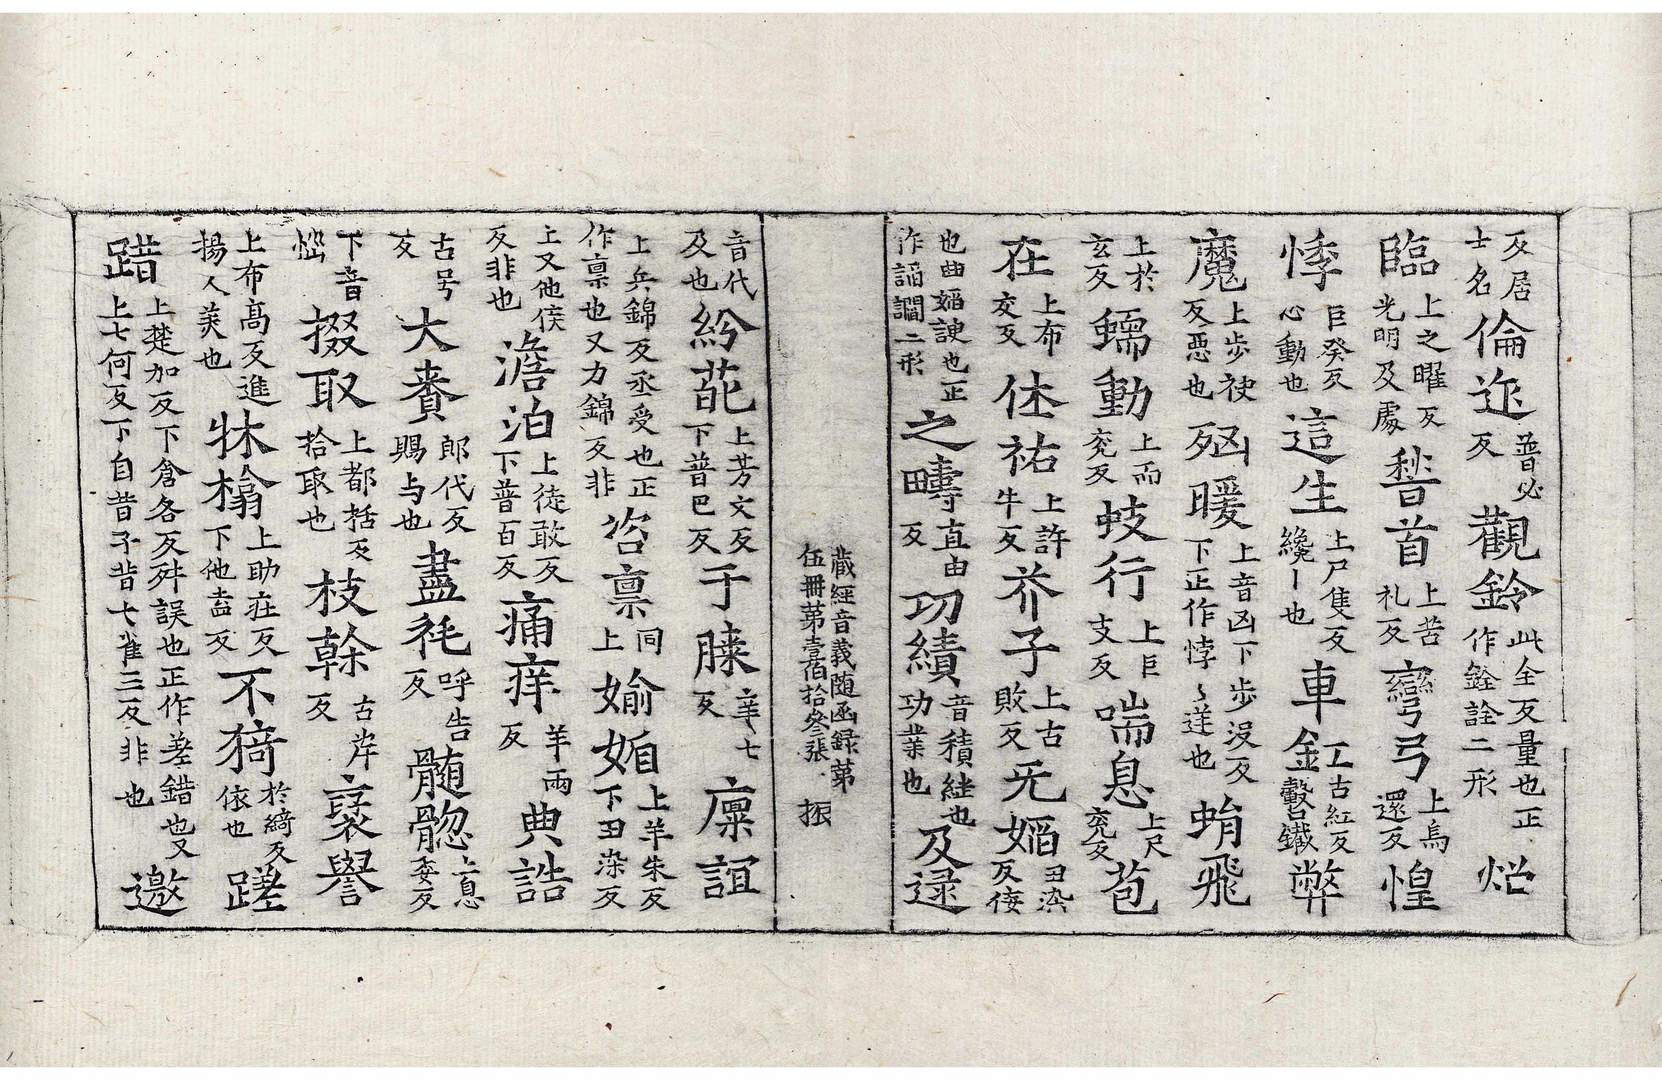 反居士名倫迮普必反觀鈴此全反量也正作銓詮二形焰
臨上之曜反光明及處𥡴首上苦礼反彎弓上烏還反惶
悸巨癸反心動也這生上尸隻反纔〡也車釭工古紅反轂鐵弊
魔上步袂反反惡也㓙暖上音凶下步没反下正作悖〻逆也蜎飛
上於玄反蠕動上而兖反蚑行上巨支反喘息上尺兖反苞
在上布交反休祐上許牛反芥子上古敗反无婳丑染反反倿
也曲婳諛也正作謟讇二形之疇直由反功績音積緒也功業也及逮
藏經音義随函録苐伍冊苐壹佰拾叄張 振
音代及也紛葩上芳文反下普巴反于膝辛七反廩誼
上兵錦反丞受也正作稟也又力錦反非咨稟同上婾婳上羊朱反下丑染反
上又他侯反非也澹泊上徒敢反下普百反痛痒羊兩反典誥
古号反大賚郎代反賜与也盡耗呼告反髄𩩲上息委反
下音惚掇取上都栝反拾取也枝榦古岸反裦譽
上布髙反進揚人美也牀榻上助庄反下他盍反不猗於綺反依也蹉
踖上楚加反下倉各反舛誤也正作差錯也又上七何反下自昔子昔七雀三反非也邀